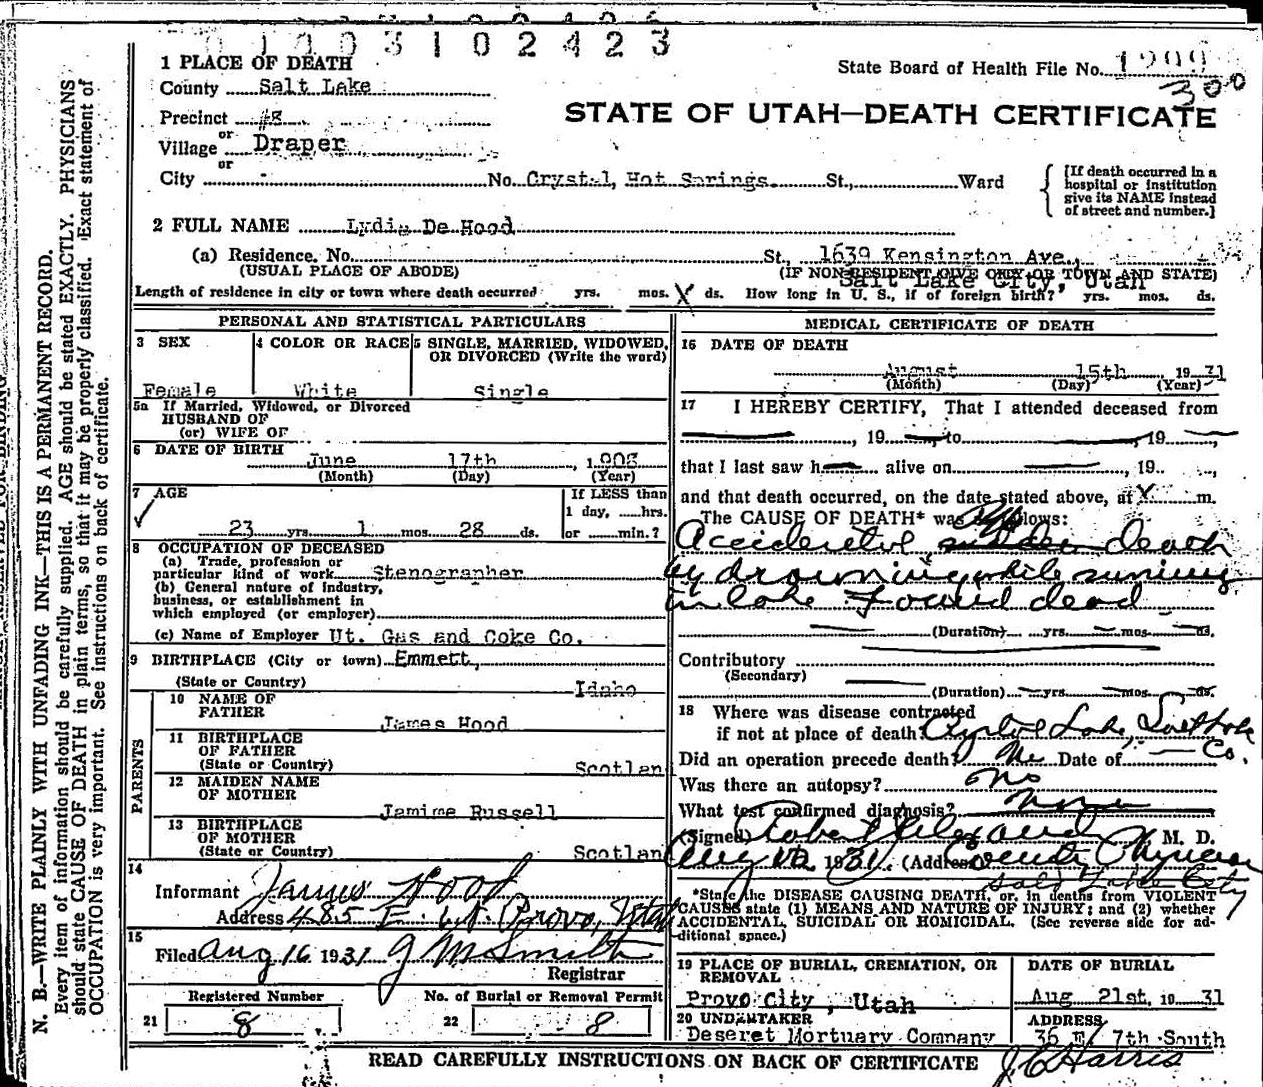 0 1 0 0 3 1 0 2 4 2 3
1 PLACE OF DEATH
State Board of Health File No. 1909
300
County Salt Lake
STATE OF UTAH—DEATH CERTIFICATE
Precinct #8
or
Village Draper
or
City No. Crystal Hot Springs St., Ward
[If death occurred in a
hospital or institution
give its NAME instead
of street and number.]
2 FULL NAME Lydia De Hood
(a) Residence. No. St., 1639 Kensington Ave.,
(USUAL PLACE OF ABODE) (IF NON-RESIDENT GIVE CITY OR TOWN AND STATE)
Salt Lake City, Utah
Length of residence in city or town where death occurred yrs. mos. X ds. How long in U. S., if of foreign birth? yrs. mos. ds.
PERSONAL AND STATISTICAL PARTICULARS
3 SEX
Female
4 COLOR OR RACE
White
5 SINGLE, MARRIED, WIDOWED,
OR DIVORCED (Write the word)
Single
5a If Married, Widowed, or Divorced
HUSBAND OF
(or) WIFE OF
6 DATE OF BIRTH
June 17th, 1908
(Month) (Day) (Year)
7 AGE
23 yrs. 1 mos. 28 ds.
If LESS than
1 day, hrs.
or min.?
8 OCCUPATION OF DECEASED
(a) Trade, profession or
particular kind of work Stenographer
(b) General nature of industry,
business, or establishment in
which employed (or employer)
(c) Name of Employer Ut. Gas and Coke Co.
9 BIRTHPLACE (City or town) Emmett,
(State or Country) Idaho
PARENTS
10 NAME OF
FATHER
James Hood
11 BIRTHPLACE
OF FATHER
(State or Country) Scotlan
12 MAIDEN NAME
OF MOTHER
Jamime Russell
13 BIRTHPLACE
OF MOTHER
(State or Country) Scotlan
14
Informant James Hood
Address 485 E. Provo, Utah
15
Filed Aug 16 1931 J M Smith
Registrar
Registered Number
21 8
No. of Burial or Removal Permit
22 8
MEDICAL CERTIFICATE OF DEATH
16 DATE OF DEATH
August 15th 1931
(Month) (Day) (Year)
17 I HEREBY CERTIFY, That I attended deceased from
, 19 , to , 19 ,
that I last saw h alive on , 19 ,
and that death occurred, on the date stated above, at X m.
The CAUSE OF DEATH* was as follows:
Accidental sudden death
by drowning while swimming
in lake Found dead
(Duration) yrs. mos. ds.
Contributory
(Secondary)
(Duration) yrs. mos. ds.
18 Where was disease contracted
if not at place of death? Crystal Lake, Salt Lake
Co.
Did an operation precede death? No Date of
Was there an autopsy? No
What test confirmed diagnosis? None
(Signed) Robert Alexander M. D.
Aug 1931. (Address) County Physician
Salt Lake City
*State the DISEASE CAUSING DEATH, or, in deaths from VIOLENT
CAUSES state (1) MEANS AND NATURE OF INJURY; and (2) whether
ACCIDENTAL, SUICIDAL OR HOMICIDAL. (See reverse side for ad-
ditional space.)
19 PLACE OF BURIAL, CREMATION, OR
REMOVAL
Provo City, Utah
DATE OF BURIAL
Aug 21st, 1931
20 UNDERTAKER
Deseret Mortuary Company
ADDRESS
36 E/ 7th South
READ CAREFULLY INSTRUCTIONS ON BACK OF CERTIFICATE
J. C. Harris
N. B.—WRITE PLAINLY WITH UNFADING INK—THIS IS A PERMANENT RECORD.
Every item of information should be carefully supplied. AGE should be stated EXACTLY. PHYSICIANS
should state CAUSE OF DEATH in plain terms, so that it may be properly classified. Exact statement of
OCCUPATION is very important. See instructions on back of certificate.